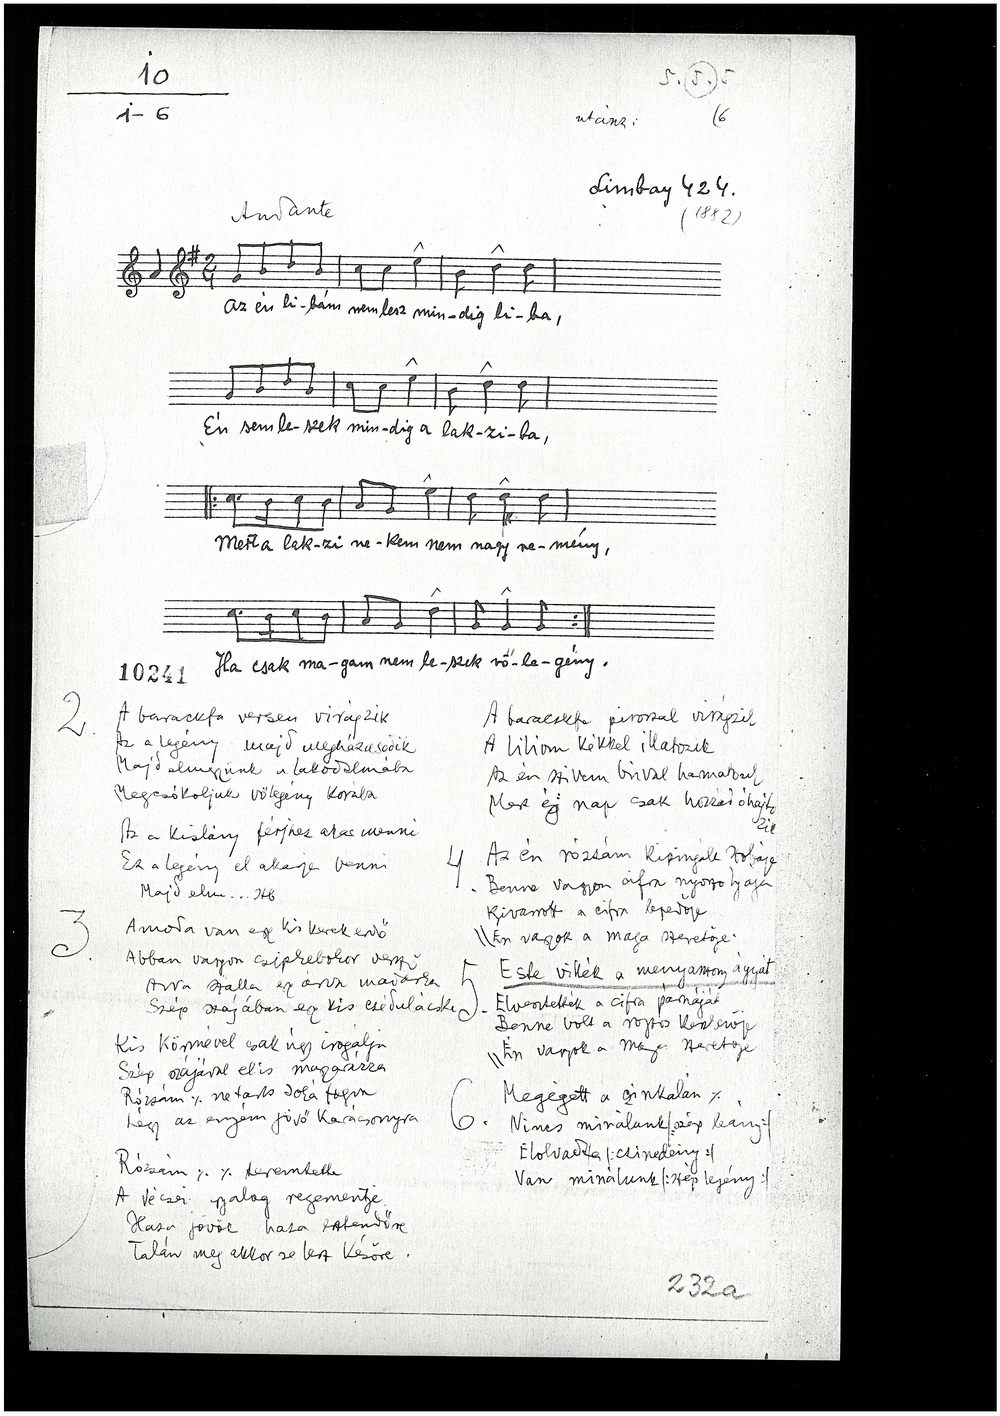 10
1-6
5. 5. 5
utánz: (6
Limbay 424.
(1882)
Andante
Az én li-bám nem lesz min-dig li-ba,
Én sem le-szek min-dig a lak-zi-ba,
Mert a lak-zi ne-kem nem nagy re-mény,
Ha csak ma-gam nem le-szek vő-le-gény.
10241
2.
A barackfa versen virágzik
Az a legény majd megházasodik
Majd elmegyünk a lakodalmába
Megcsókoljuk vőlegény korába
Az a kislány férjhez akar menni
Ez a legény el akarja venni
Majd elm... stb
3.
Amoda van egy kis kerek erdő
Abban vagyon csipkebokor
Arra szálla egy árva madárka
Szép szájában egy kis cédulácska
Kis körmével csak úgy irogálja
Szép szájával el is magyarázza
Rózsám % ne tarts soká fogva
Légy az enyém jövő Karácsonyra
Rózsám % %
A bécsi gyalog regementje
Haza jövök haza esztendőre
Talán még akkor se lesz későre.
A baracskfa pirossal virágzik
A liliom kékkel illatozik
Az én szivem búval harmatozik
Mert éj nap csak hozzád óhajt
zik
4.
Az én rózsám kipingált szobája
Benne vagyon cifra nyoszolyája
Kivarrott a cifra lepedője
\\ Én vagyok a maga szeretője.
5.
Este vitték a menyasszony ágyát
Elvesztették a cifra párnáját
Benne volt a rojtos keszkenője
\\ Én vagyok a maga szeretője
6.
Megégett a cinkalán %
Nincs minálunk |: szép leány :|
Elolvadt a |: czinedény :|
Van minálunk |: szép legény :|
232a